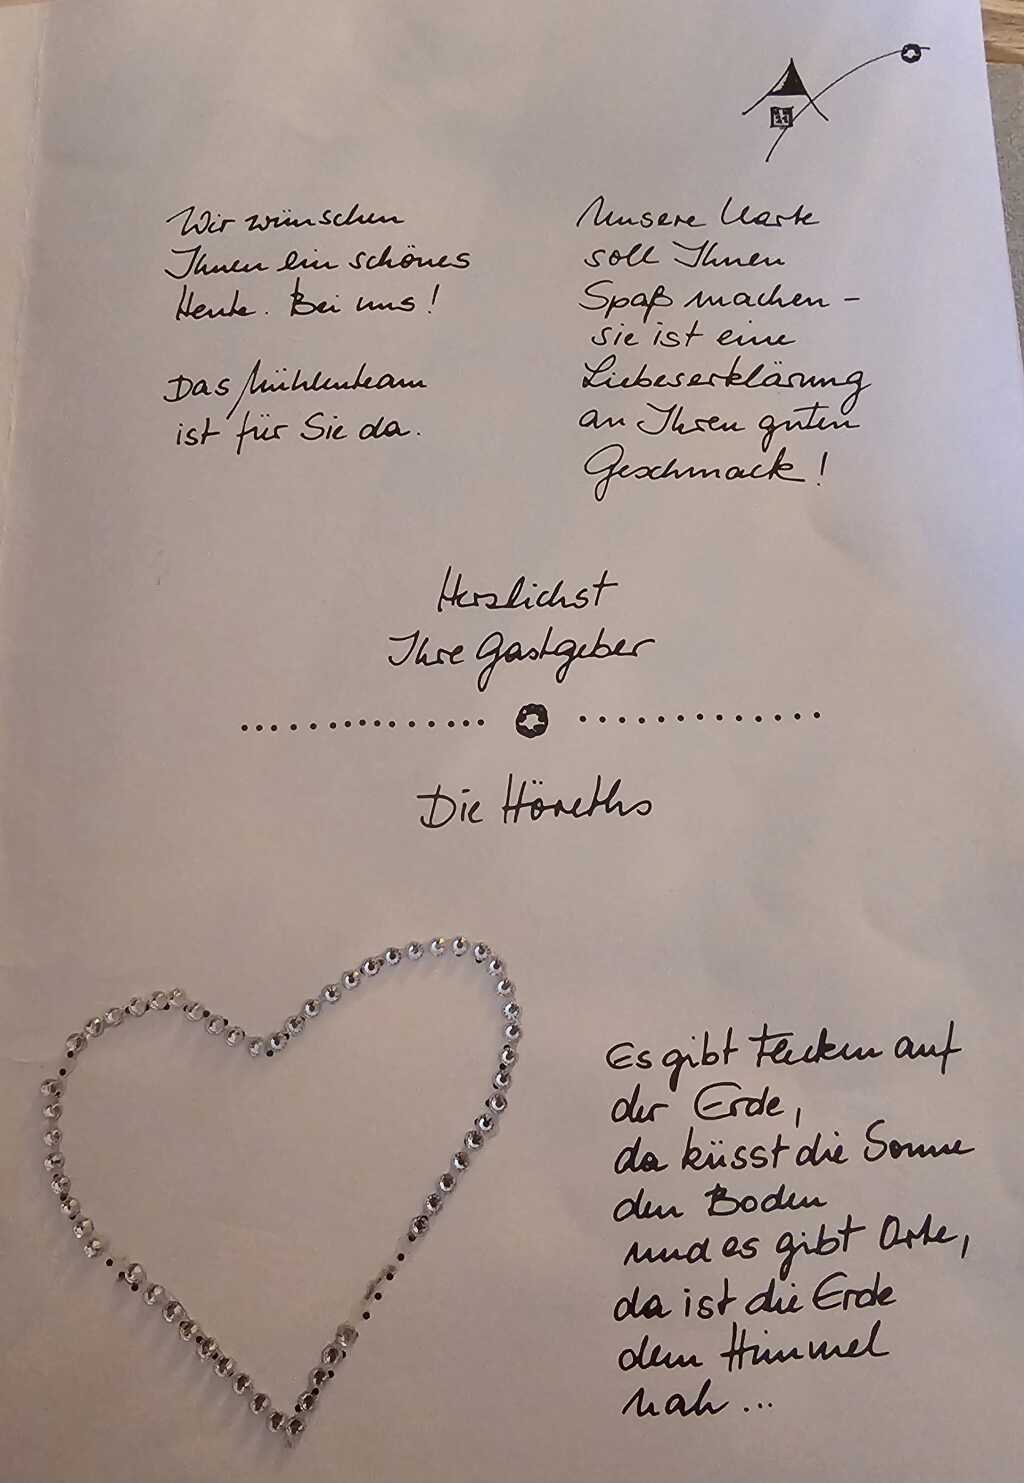 Wir wünschen
Ihnen ein schönes
Heute. Bei uns!
Das Mühlenteam
ist für Sie da.
Unsere Karte
soll Ihnen
Spaß machen –
sie ist eine
Liebeserklärung
an Ihren guten
Geschmack!
Herzlichst
Ihre Gastgeber
Die Höreths
Es gibt Flecken auf
der Erde,
da küsst die Sonne
den Boden
und es gibt Orte,
da ist die Erde
dem Himmel
nah...